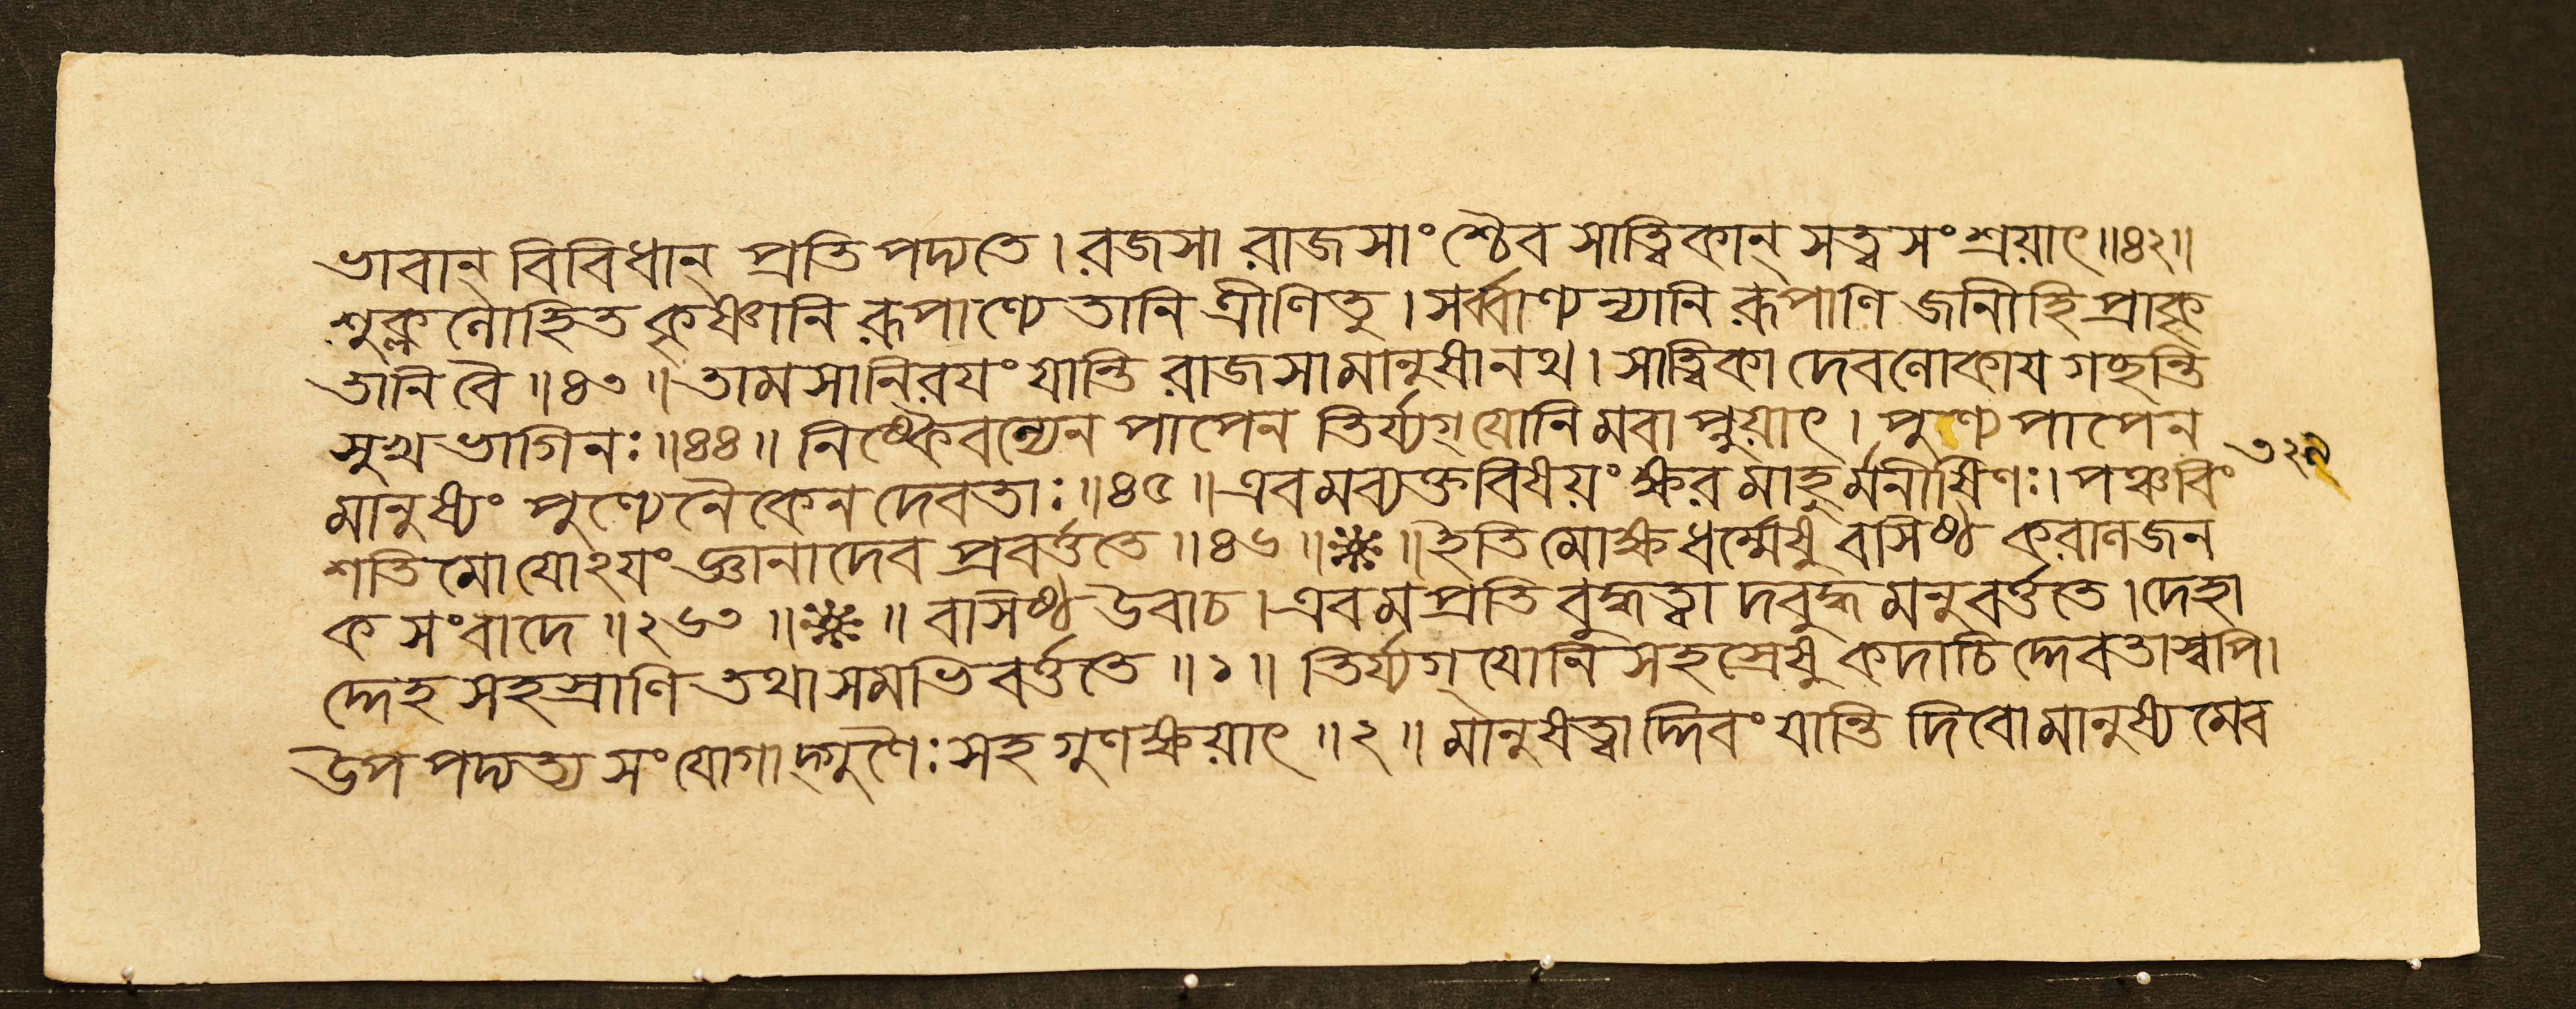 ভাবান্ বিবিধান্ প্রতিপদ্যতে । রজসা রাজসাংশ্চৈব সাত্ত্বিকান্ সত্ত্বসংশ্রয়াৎ ॥৪২॥
শুক্ললোহিতকৃষ্ণানি রূপাণ্যেতানি ত্রীণি তু । সর্ব্বাণ্যন্যানি রূপাণি জানীহি প্রাকৃ
তানি বৈ ॥৪৩॥ তামসা নিরয়ং যান্তি রাজসা মানুষানথ । সাত্ত্বিকা দেবলোকায় গচ্ছন্তি
সুখভাগিনঃ ॥৪৪॥ নিষ্কৈবল্যেন পাপেন তির্য্যগ্‌যোনিমবাপ্নুয়াৎ । পুণ্যপাপেন
মানুষ্যং পুণ্যেনৈকেন দেবতাঃ ॥৪৫॥ এবমব্যক্তবিষয়ং ক্ষরমাহুর্মনীষিণঃ । পঞ্চবিং
শতিমো যোঽয়ং জ্ঞানাদেব প্রবর্ত্ততে ॥৪৬॥ ※ ॥ ইতি মোক্ষধর্ম্মেষু বসিষ্ঠকরালজন
কসংবাদে ॥২৬৩॥ ※ ॥ বাসিষ্ঠ উবাচ । এবমপ্রতিবুদ্ধত্বাদবুদ্ধমনুবর্ত্ততে । দেহা
দ্দেহসহস্রাণি তথা সমভিবর্ত্ততে ॥১॥ তির্য্যগ্‌যোনিসহস্রেষু কদাচিদ্দেবতাস্বপি ।
উপপদ্যত্য সংযোগাদ্গুণৈঃ সহ গুণক্ষয়াৎ ॥২॥ মানুষত্বাদ্দিবং যান্তি দিবো মানুষ্যমেব